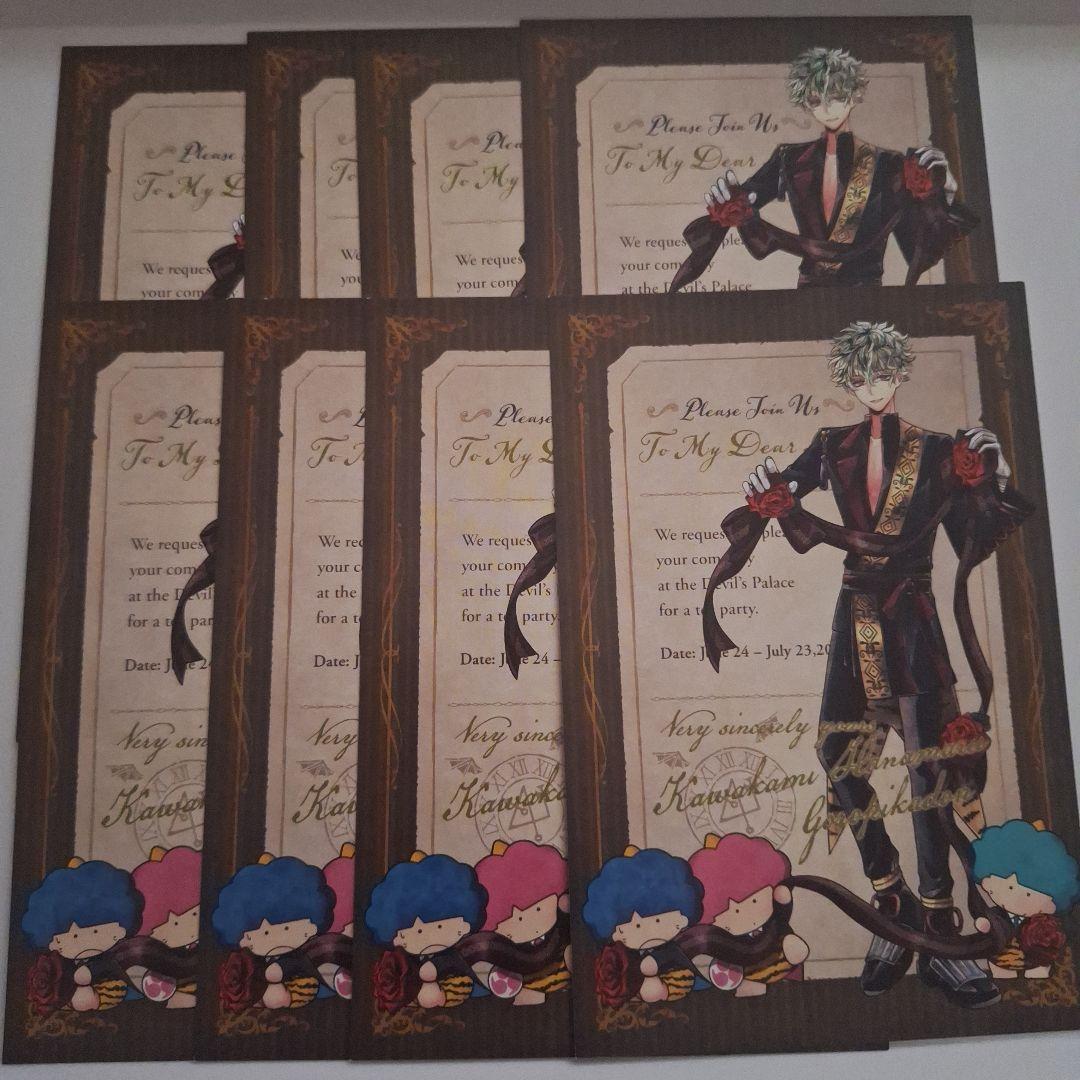 Please
To My D
We reques
your com
To
We
you
Plea
To My
We reques
your com
Please Join Us
To My Dear
We reques ple
your com y
at the Devil's Palace
Pleas
To My
We reques
your com
at the Devil
for a te par
Date: June 24
Very sin
Kawa
To M
We re
your c
at the
for a
Date: J
Very
Kawa
Please
To My D
We reques
your com
at the Devil's
for a te party.
Date: June 24 –
Very since
Kawaka
Please Join Us
To My Dear
We reques ple
your com y
at the Devil's Palace
for a te party.
Date: June 24 – July 23,20
Very sincerely yours
Kawakami Hanamukes
Goropikadon